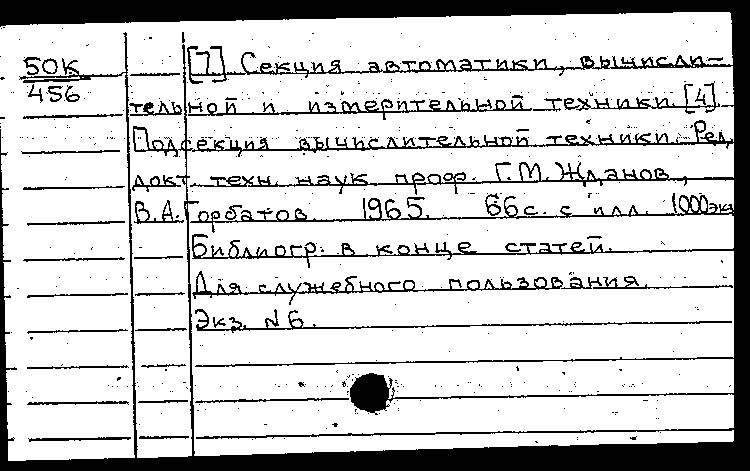 50К
456
[7] Секция автоматики, вычисли-
тельной и измерительной техники [4]
Подсекция вычислительной техники. Ред.
докт. техн. наук проф. Г.М. Жданов,
В.А. Горбатов. 1965. 66 с. с илл. 1000 экз
Библиогр. в конце статей.
Для служебного пользования.
Экз. N 6.